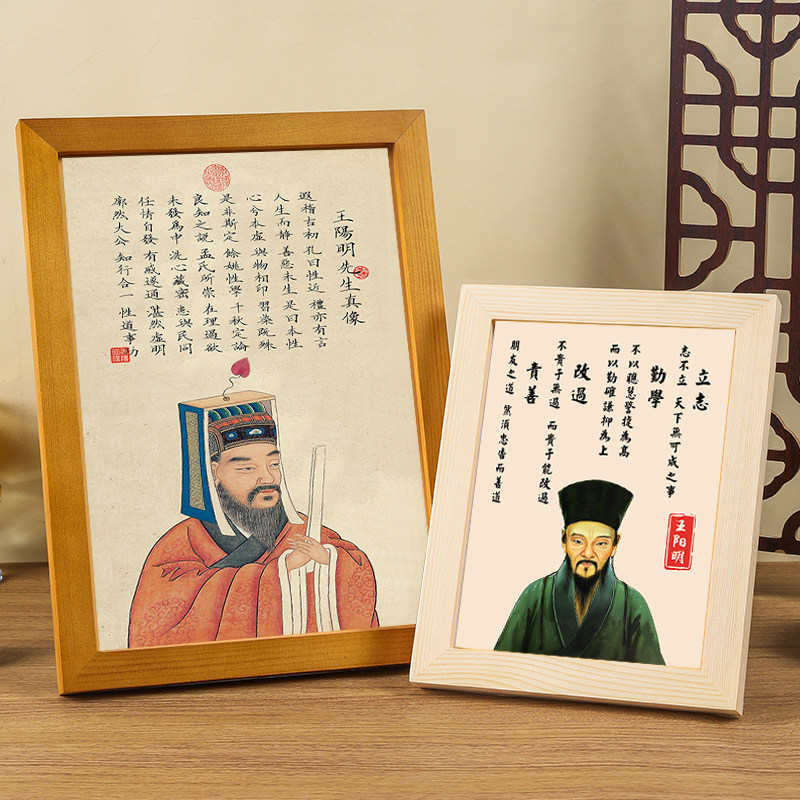 王陽明先生真像
遐稽古初 孔曰性近 禮亦有言
人生而静 善惡未生 是曰本性
心兮本虛 與物相印 習染既殊
是非斯定 餘姚性學 千秋定論
良知之説 孟氏所崇 在理遏欲
未發爲中 洗心藏密 患與民同
任情自發 有感遂通 湛然虛明
廓然大公 知行合一 性道事功
立志
志不立 天下無可成之事
勤學
不以聰慧警捷為高
而以勤確謙抑為上
改過
不貴于無過 而貴于能改過
責善
朋友之道 然須忠告而善道
王阳明